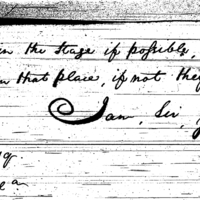 in the stage if possible,
that place, if not they
I am, Sir,